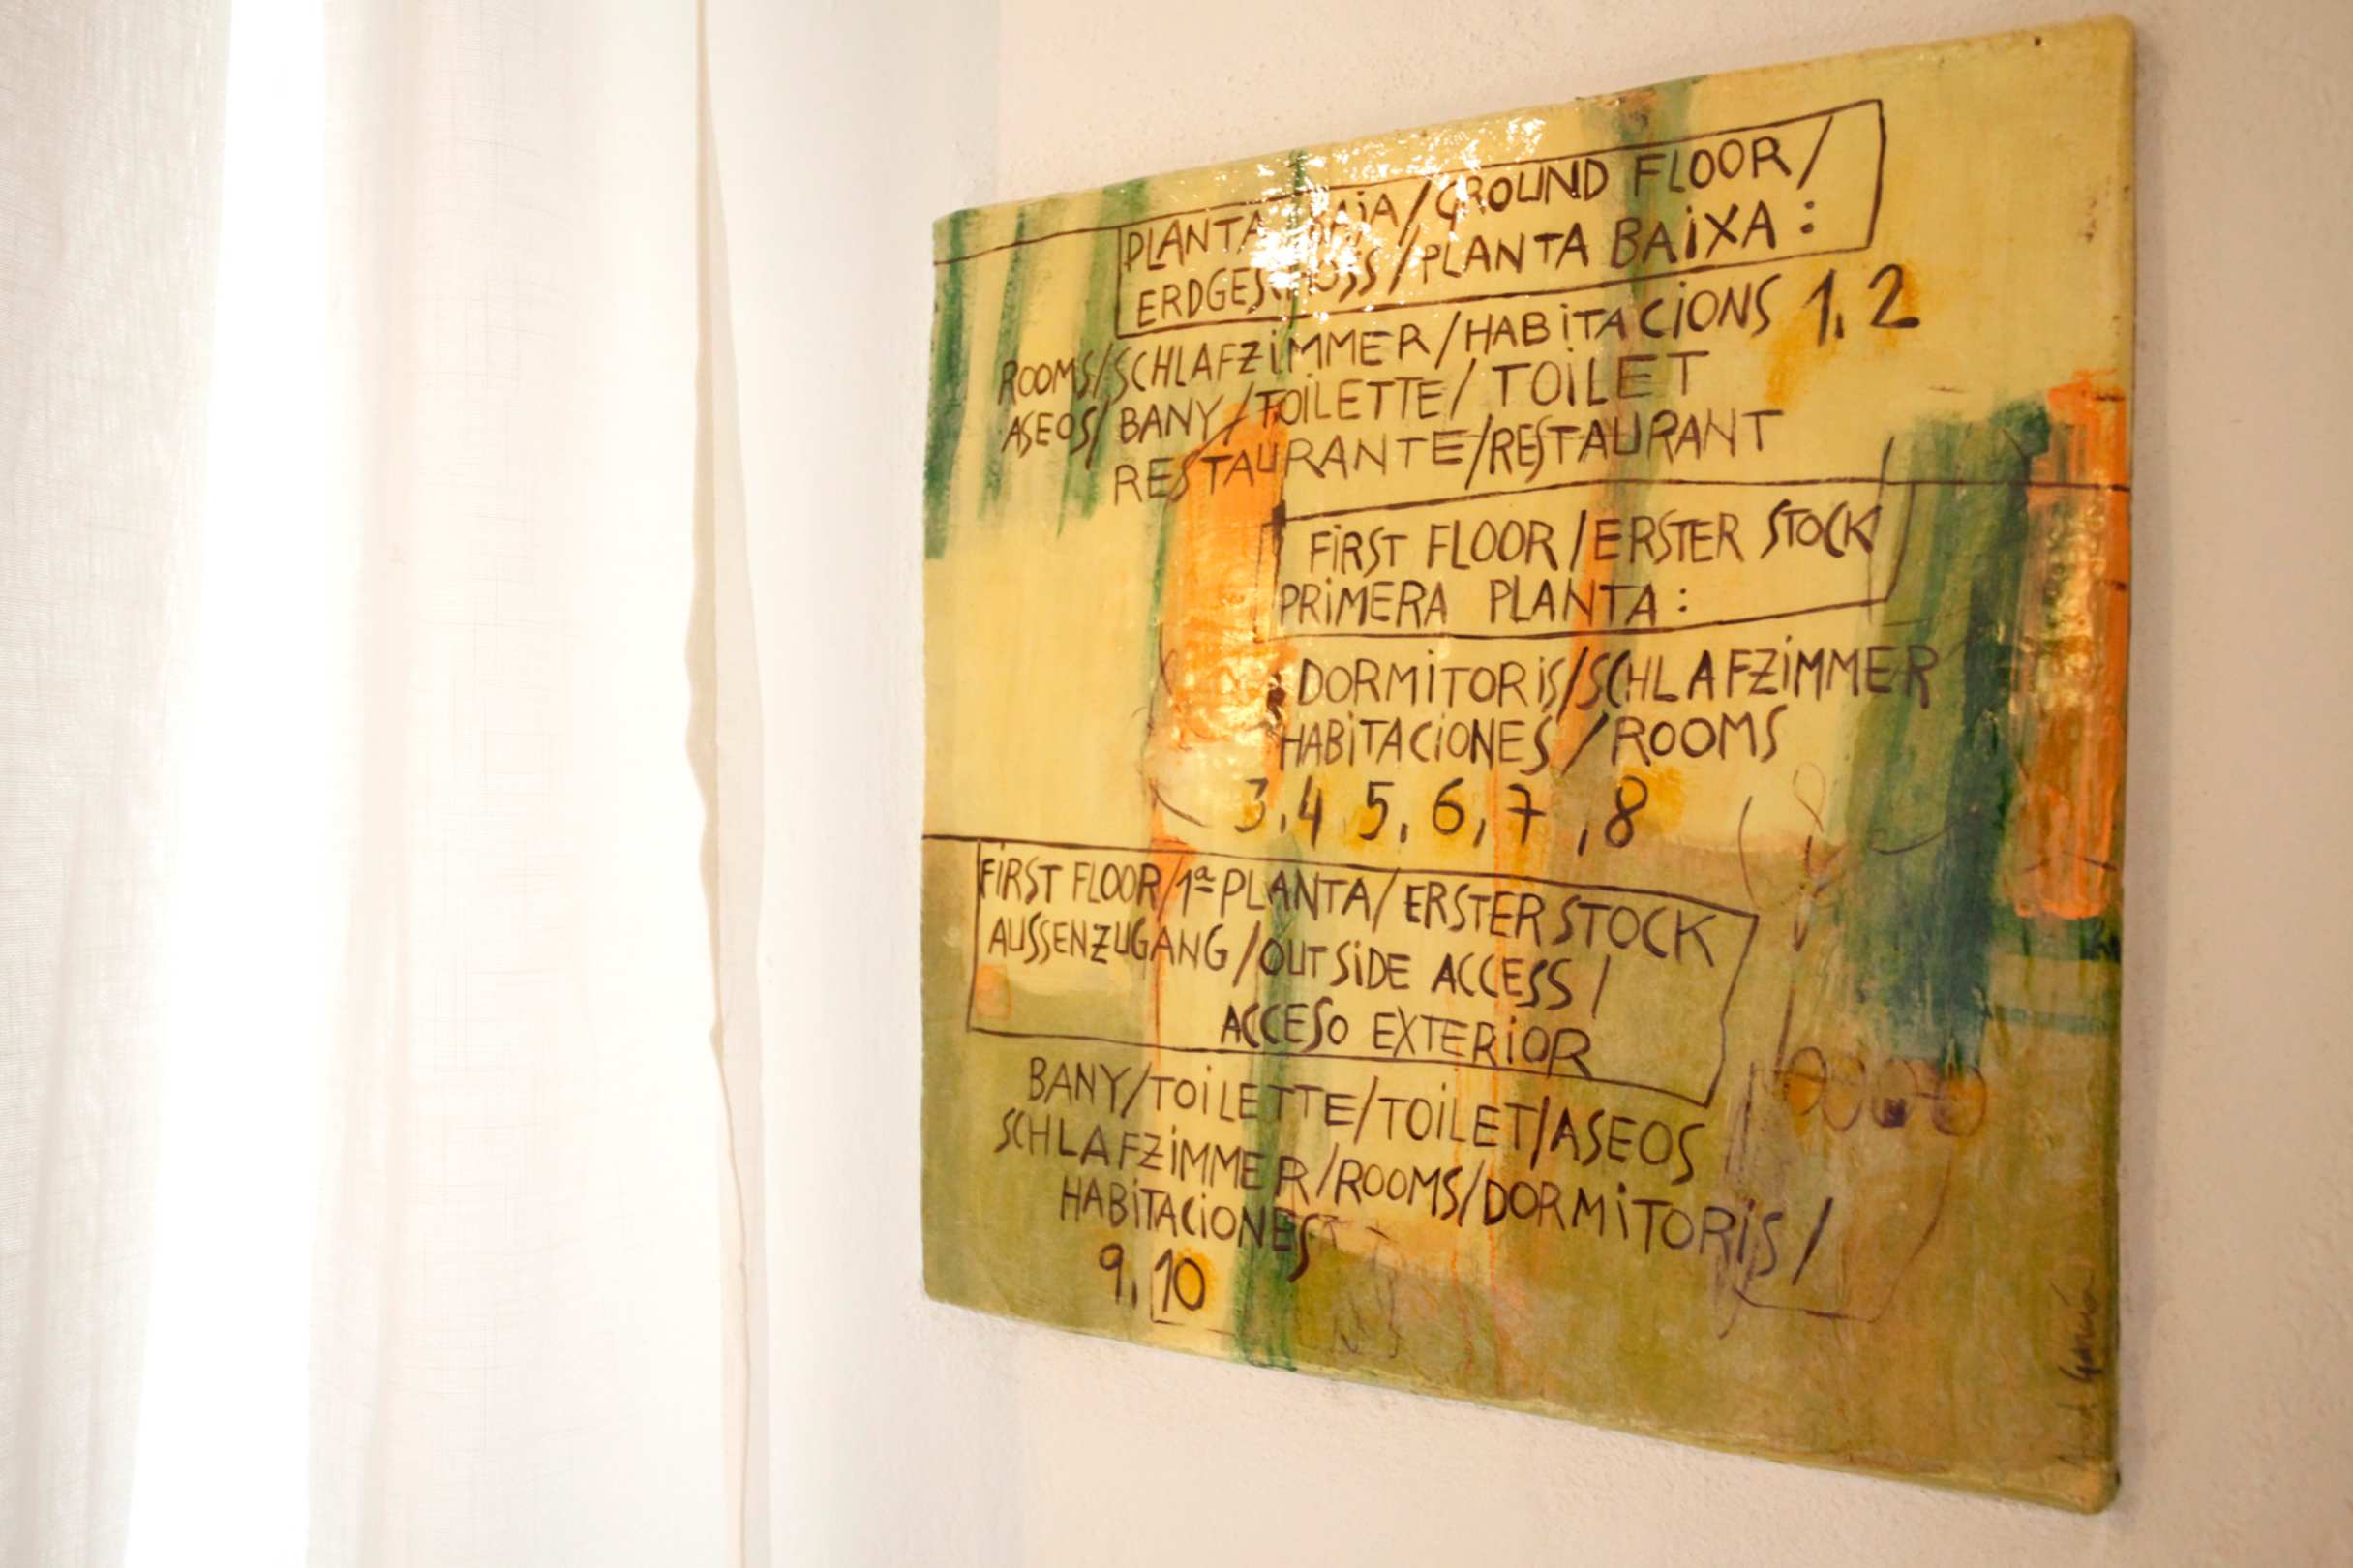 PLANTA BAJA/GROUND FLOOR/
ERDGESCHOSS/PLANTA BAIXA:
ROOMS/SCHLAFZIMMER/HABITACIONS 1,2
ASEOS/BANY/TOILETTE/TOILET
RESTAURANTE/RESTAURANT
FIRST FLOOR/ERSTER STOCK
PRIMERA PLANTA:
DORMITORIS/SCHLAFZIMMER
HABITACIONES/ROOMS
3,4 5,6,7,8
FIRST FLOOR/1ª PLANTA/ERSTER STOCK
AUSSENZUGANG/OUTSIDE ACCESS/
ACCESO EXTERIOR
BANY/TOILETTE/TOILET/ASEOS
SCHLAFZIMMER/ROOMS/DORMITORIS/
HABITACIONES
9,10